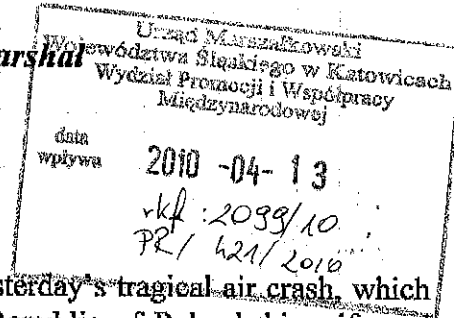 arshal
Urząd Marszałkowski
Województwa Śląskiego w Katowicach
Wydział Promocji i Współpracy
Międzynarodowej
data
wpływu
2010 -04- 13
rkf : 2099/10
PR / 421/ 2010
sterday's tragical air crash, which